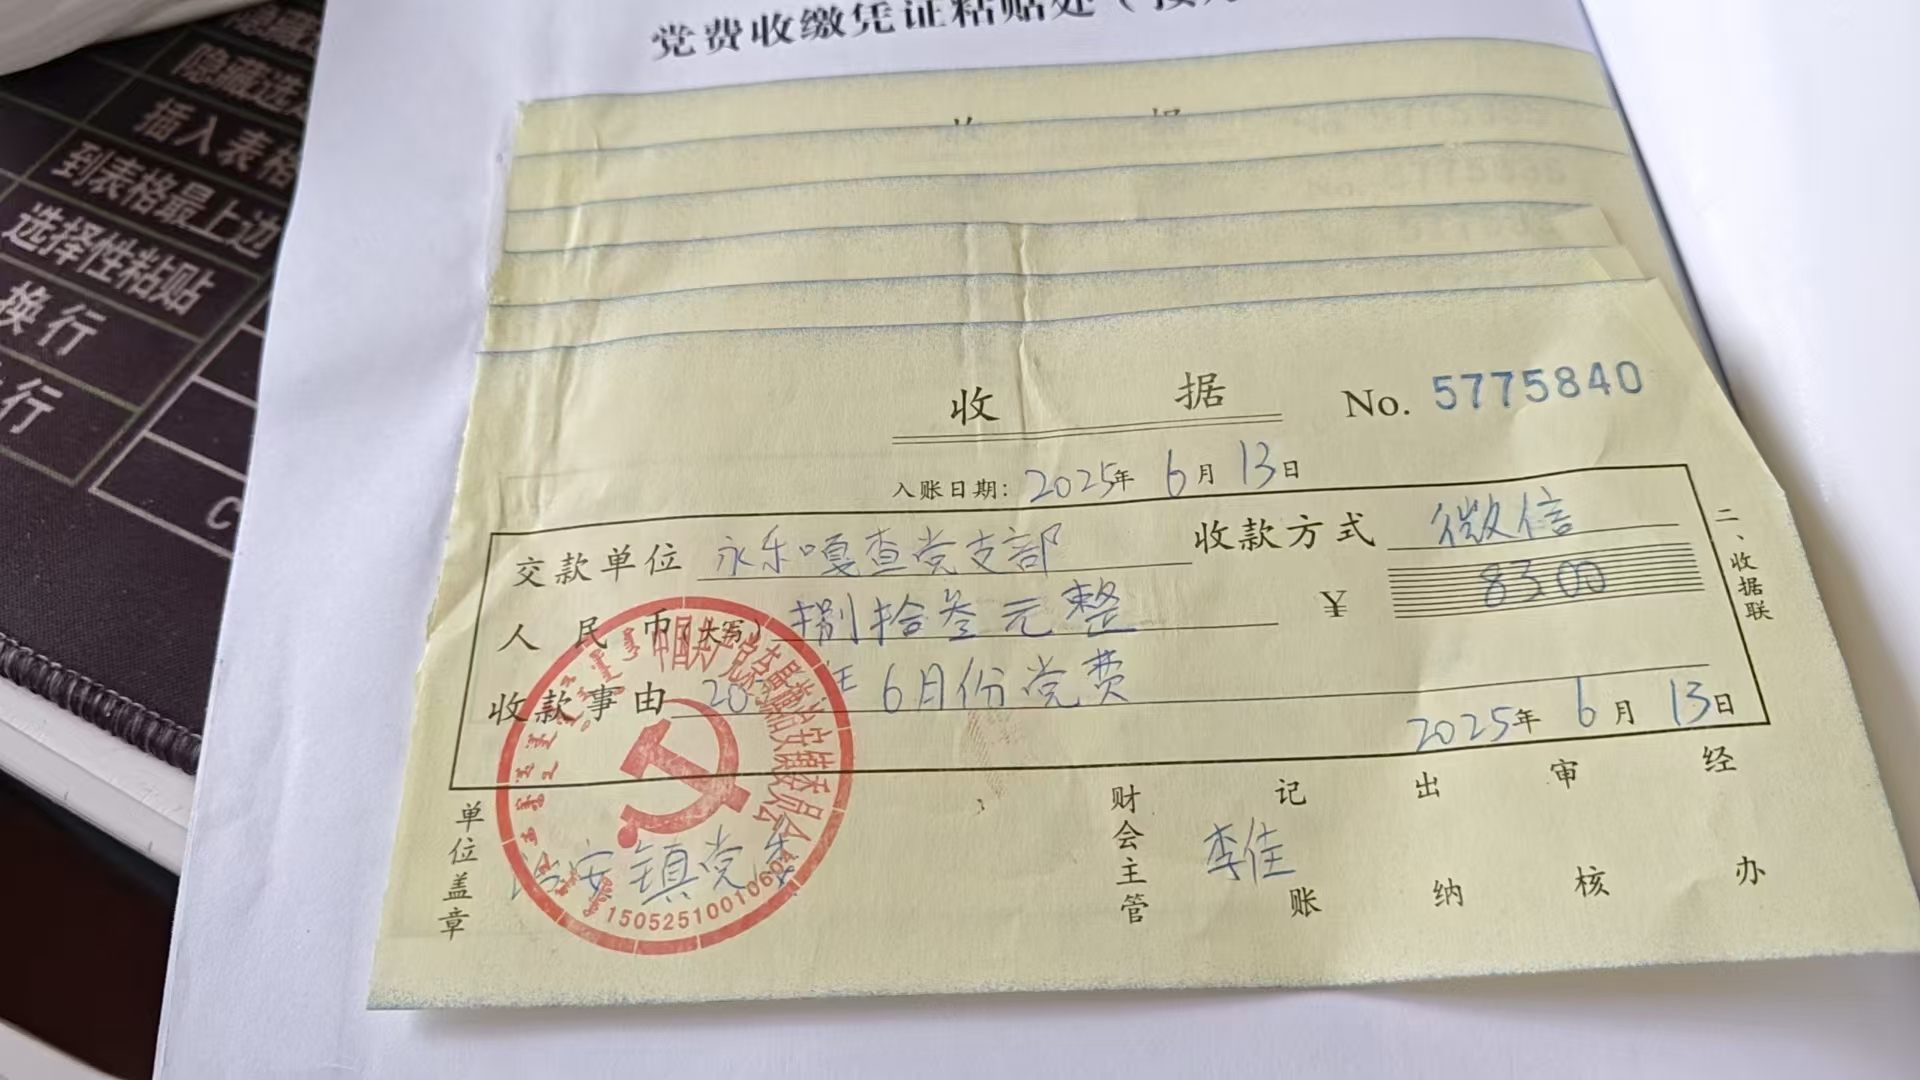 党费收缴凭证粘贴处
隐藏选
插入表格
到表格最上边
选择性粘贴
换行
行
C
收 据
收 据 No. 5775840
入账日期: 2025年 6月 13日
交款单位 永乐嘎查党支部 收款方式 微信
人民币(大写) 捌拾叁元整 ¥ 8300
收款事由 20 年 6月份党费
2025年 6月 13日
二、收据联
单位盖章 治安镇党委
财会主管 李佳 记账 出纳 审核 经办
中国共产党 治安镇委员会
1505251001060